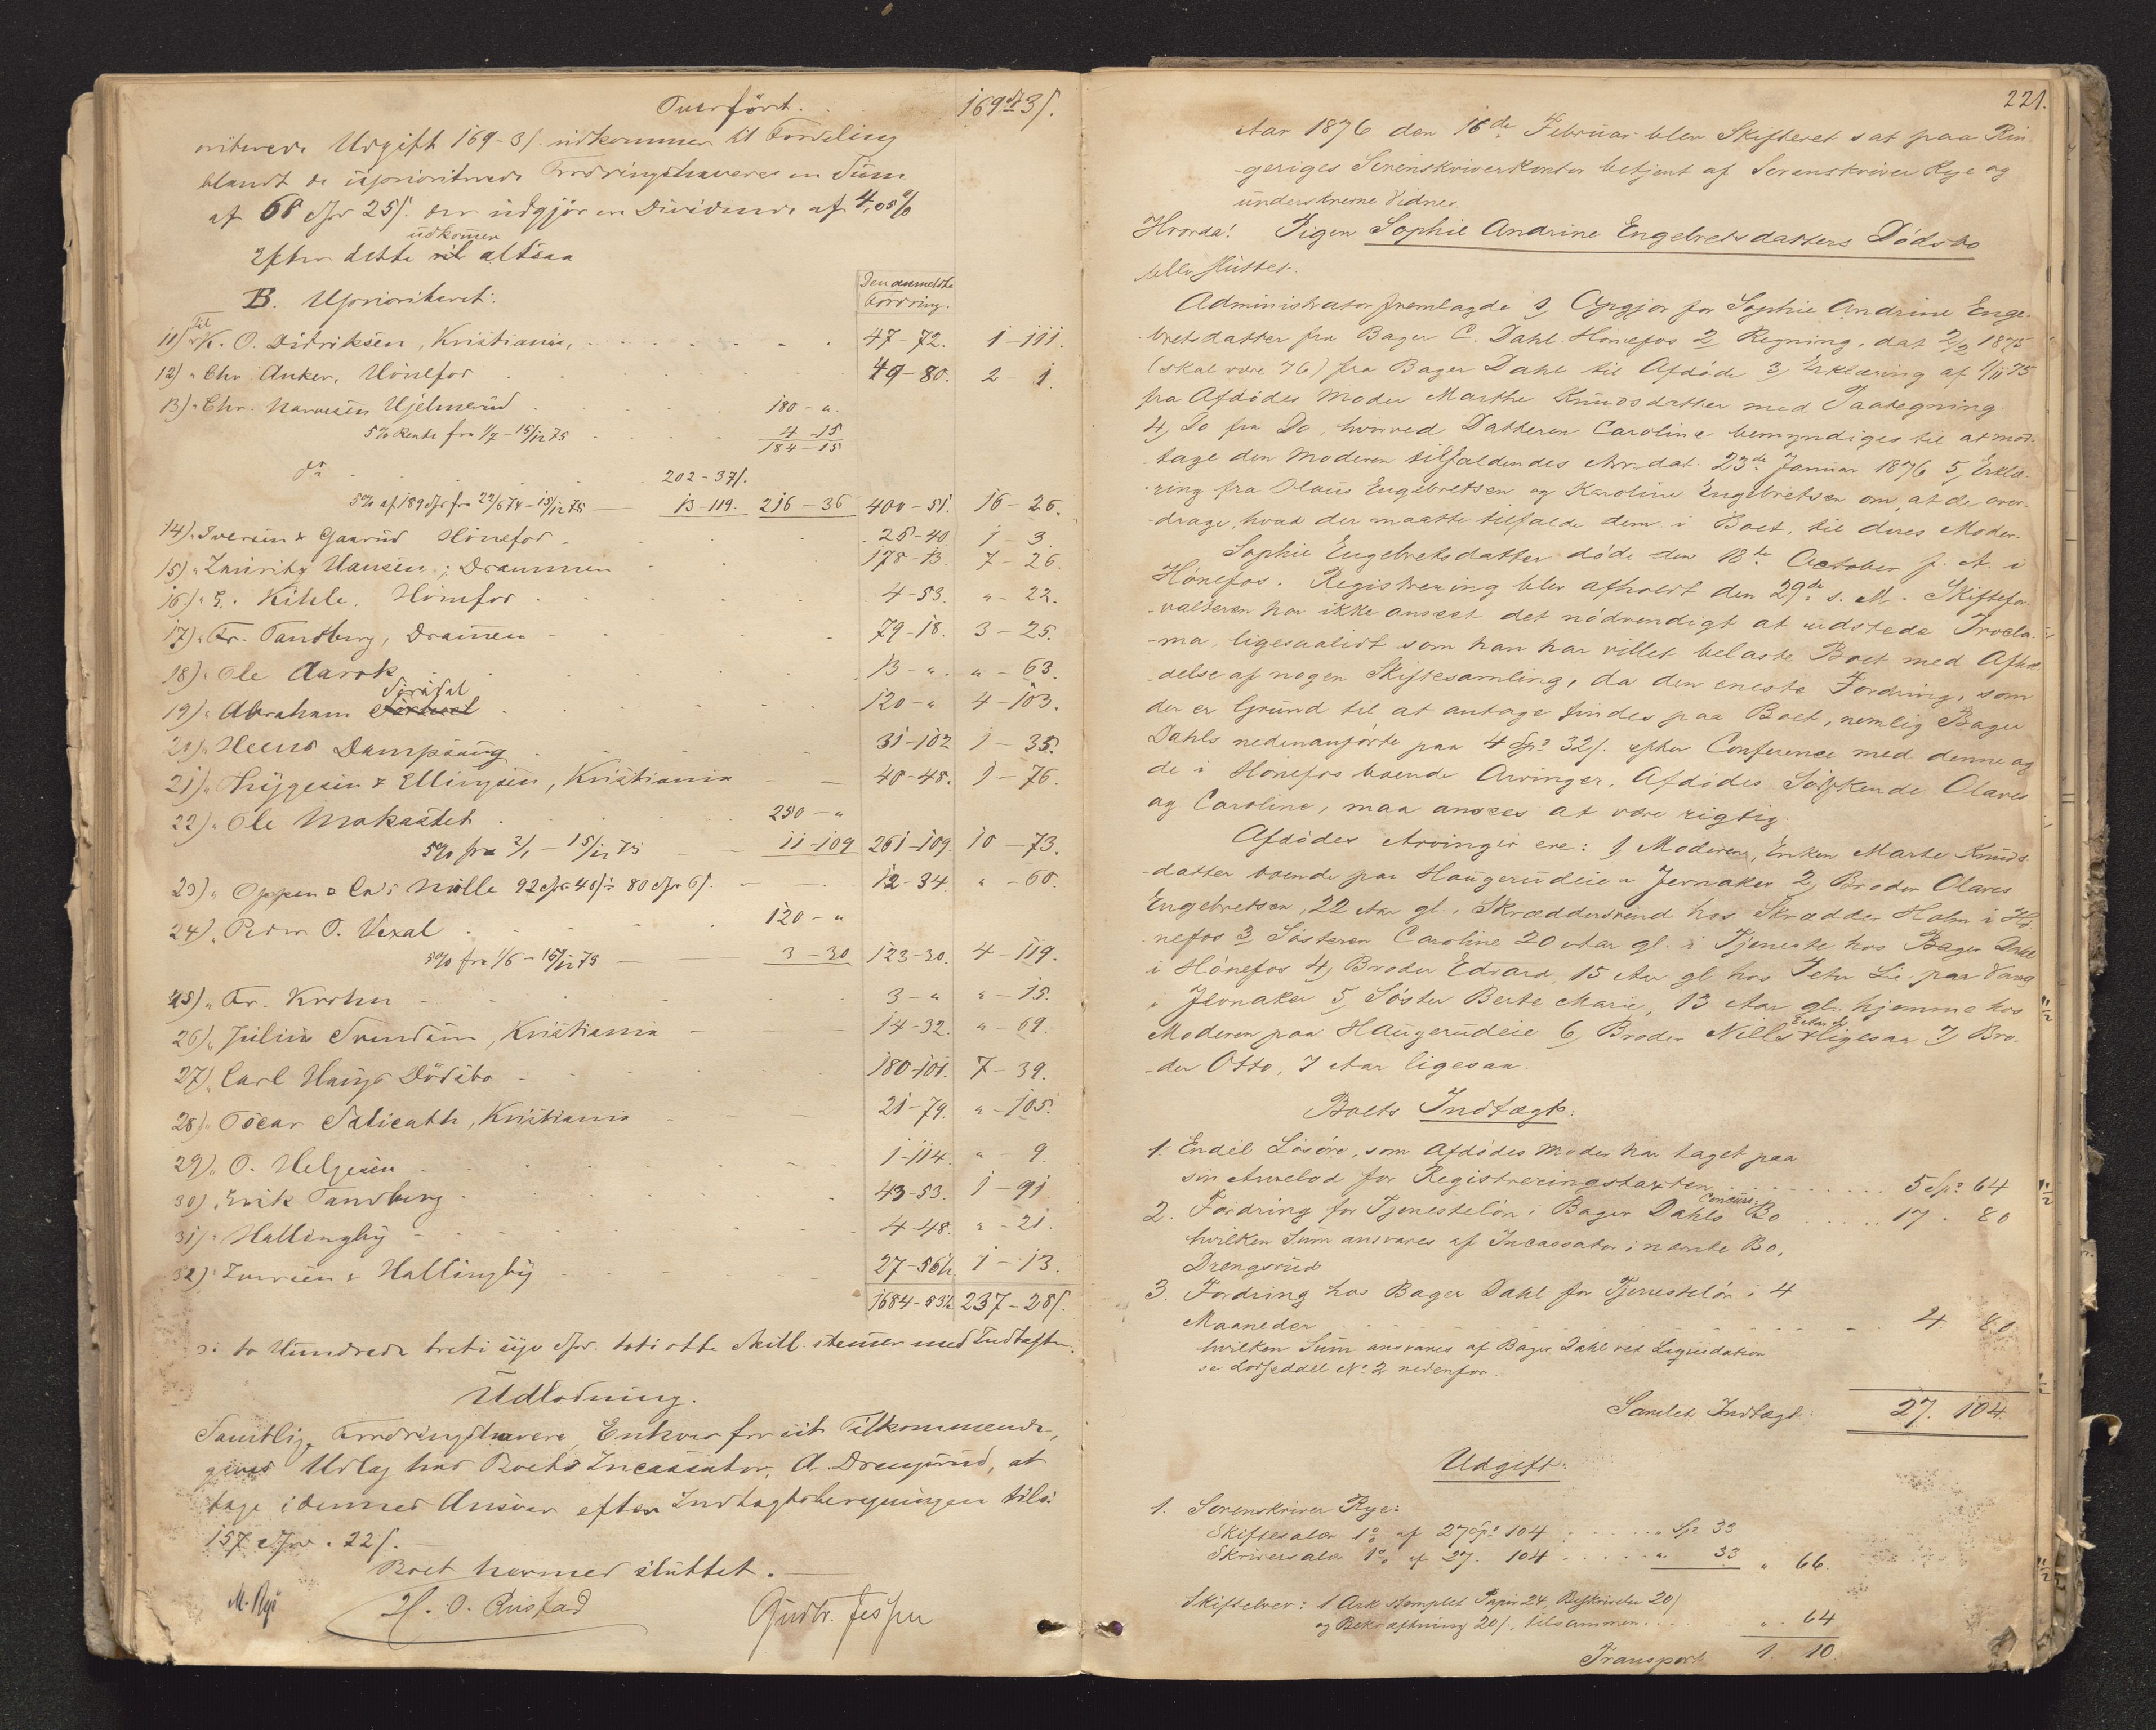 Overført . . 169 3/.
oriterede Udgift 169-3/. udkommer til Fordeling
blandt de uprioriterede Fordringshavere en Sum
af 68 Spd 25/. der udgjør en Dividende af 4,05%
udkommer
Efter dette vil altsaa
B. Uprioriteret:
Den anmeldte Fordring.
Til
11) K. O. Didriksen, Kristiania, . . . 47-72. 1-111.
12) " Chr Anker, Hönefos . . . 49-80. 2-1.
13) " Chr. Hjelmerud . . . 180-"
5% Rente fra 1/7-15/12 75 . . . 4-15
184-15
do . . . 202-37/.
5% af 189 Spd fra 22/6 74-15/12 75 — 13-119. 216-36 400-51. 16-26.
14) " Iversen & Gaarud Hönefos . . . 25-40. 1-3.
15) " Hansen, Drammen . . . 178-13. 7-26.
16) " E. Kihle, Hönefos . . . 4-53. "-22.
17) " Fr. Tandberg, Dramen . . . 79-18. 3-25.
18) " Ole Aarok . . . 13-". "-63.
19) " Abraham . . . 120-" 4-103.
20) " . . . 31-102 1-35.
21) " & Ellingsen, Kristiania — — 40-48. 1-76.
22) " Ole Moksastet . . . 250-"
5% fra 2/1-15/12 75 — — 11-109 261-109 10-73.
23) " Oppen & Co's Mölle 92 Spd 40/ ÷ 80 Spd 6/. — — 12-34. "-60.
24) " Peder O. Vexal . . . 120-"
5% fra 1/6-15/12 75 — — 3-30 123-30. 4-119.
25) " Fr. Krohn . . . 3-" "-15.
26) " Julius Svendsen, Kristiania — — 14-32. "-69.
27) " Carl Haugs Dödsbo . . . 180-101. 7-39.
28) " Oscar Salicath, Kristiania — — 21-79. "-105.
29) " O. Helgesen . . . 1-114. "-9.
30) " Erik Tandberg . . . 43-53. 1-91
31) " Hallingby . . . 4-48. "-21.
32) " Iversen & Hallingby . . . 27-56½. 1-13.
1684-53½ 237-28/.
ɔ: to Hundrede treti syv Spd. toti otte Skill. stemmer med Indtægten.
Udlodning.
Samtlige Fordringshavere, Enhver for sit Tilkommende,
gives Udlæg hos Boets Incassator, A. Drengsrud, at
tage i dennes Ansvar efter Indtægtsberegningen tils:
157 Spd. 22/.—
Boet hermed sluttet.—
M. Rye H. O. Gudbr. Jespersen
221.
Aar 1876 den 16de Februar blev Skifteret sat paa Rin-
-geriges Sorenskriverkontor betjent af Sorenskriver Rye og
underskrevne Vidner.
Hvorda! Pigen Sophie Andrine Engebretsdatters Dödsbo
blev sluttet.
Administrator fremlagde 1, Opgjør for Sophie Andrine Enge-
bretsdatter fra Bager C. Dahl Hönefos 2, Regning, dat 2/2 1875
(skal være 76) fra Bager Dahl til Afdöde 3, Erklæring af 1/11 75
fra Afdödes Moder Marthe Knudsdatter med Paategning
4, Do fra Do, hvorved Datteren Caroline bemyndiges til at mod-
-tage den Moderen tilfaldendes Arv dat. 23de Januar 1876 5, Erklæ-
-ring fra Olaus Engebretsen og Karoline Engebretsen om, at de over-
-drage, hvad der maatte tilfalde dem i Boet, til deres Moder.
Sophie Engebretsdatter döde den 18de October f. A. i
Hönefos. Registrering blev afholdt den 29de s. M. Skiftefor-
-valteren har ikke anseet det nödvendigt at udstede Procla-
-ma, ligesaalidt som han har villet belaste Boet med Afhol-
-delse af nogen Skiftesamling, da den eneste Fordring, som
der er Grund til at antage findes paa Boet, nemlig Bager
Dahls nedenanförte paa 4 Spd 32/. efter Conference med denne og
de i Hönefos boende Arvinger, Afdödes Södskende Olaves
og Caroline, maa ansees at være rigtig.
Afdödes Arvinger ere: 1, Moderen, Enken Marte Knuds-
-datter boende paa Haugerudeie i Jevnaker 2, Broder Olaves
Engebretsen, 22 Aar gl., Skræddersvend hos Skrædder Holm i Hö-
nefos 3, Sösteren Caroline 20 Aar gl. i Tjeneste hos Bager Dahl
i Hönefos 4, Broder Edvard, 15 Aar gl. hos Peter paa Vang
i Jevnaker 5, Söster Berte Marie, 13 Aar gl. hjemme hos
Moderen paa Haugerudeie 6, Broder Nills ligesaa 7, Bro-
-der Otto, 7 Aar ligesaa.
Boets Indtægt:
1. Endel Lösöre, som Afdödes Moder har taget paa
sin Arvelod for Registreringstaxten . . . 5 Spd 64
2. Fordring for Tjenestelön i Bager Dahls Concurs Bo . . . 19. 80
hvilken Sum ansvares af Incassator i nævnte Bo,
Drengsrud
3. Fordring hos Bager Dahl for Tjenestelön i 4
Maaneder . . . 2. 80
hvilken Sum ansvares af Bager Dahl ved Liquidation
se Lodseddel No 2 nedenfor.
Samlet Indtægt: 27. 104.
Udgift:
1. Sorenskriver Rye:
Skiftesalær 1% af 27 Spd 104 . . . " Spd 33
Skriversalær 1% af 27. 104 . . . " 33 " 66.
Skiftebrev: 1 Ark stemplet Papir 24, Beskrivelse 20/
og Bekræftning 20/, tilsammen . . . " 64
Transport 1. 10.